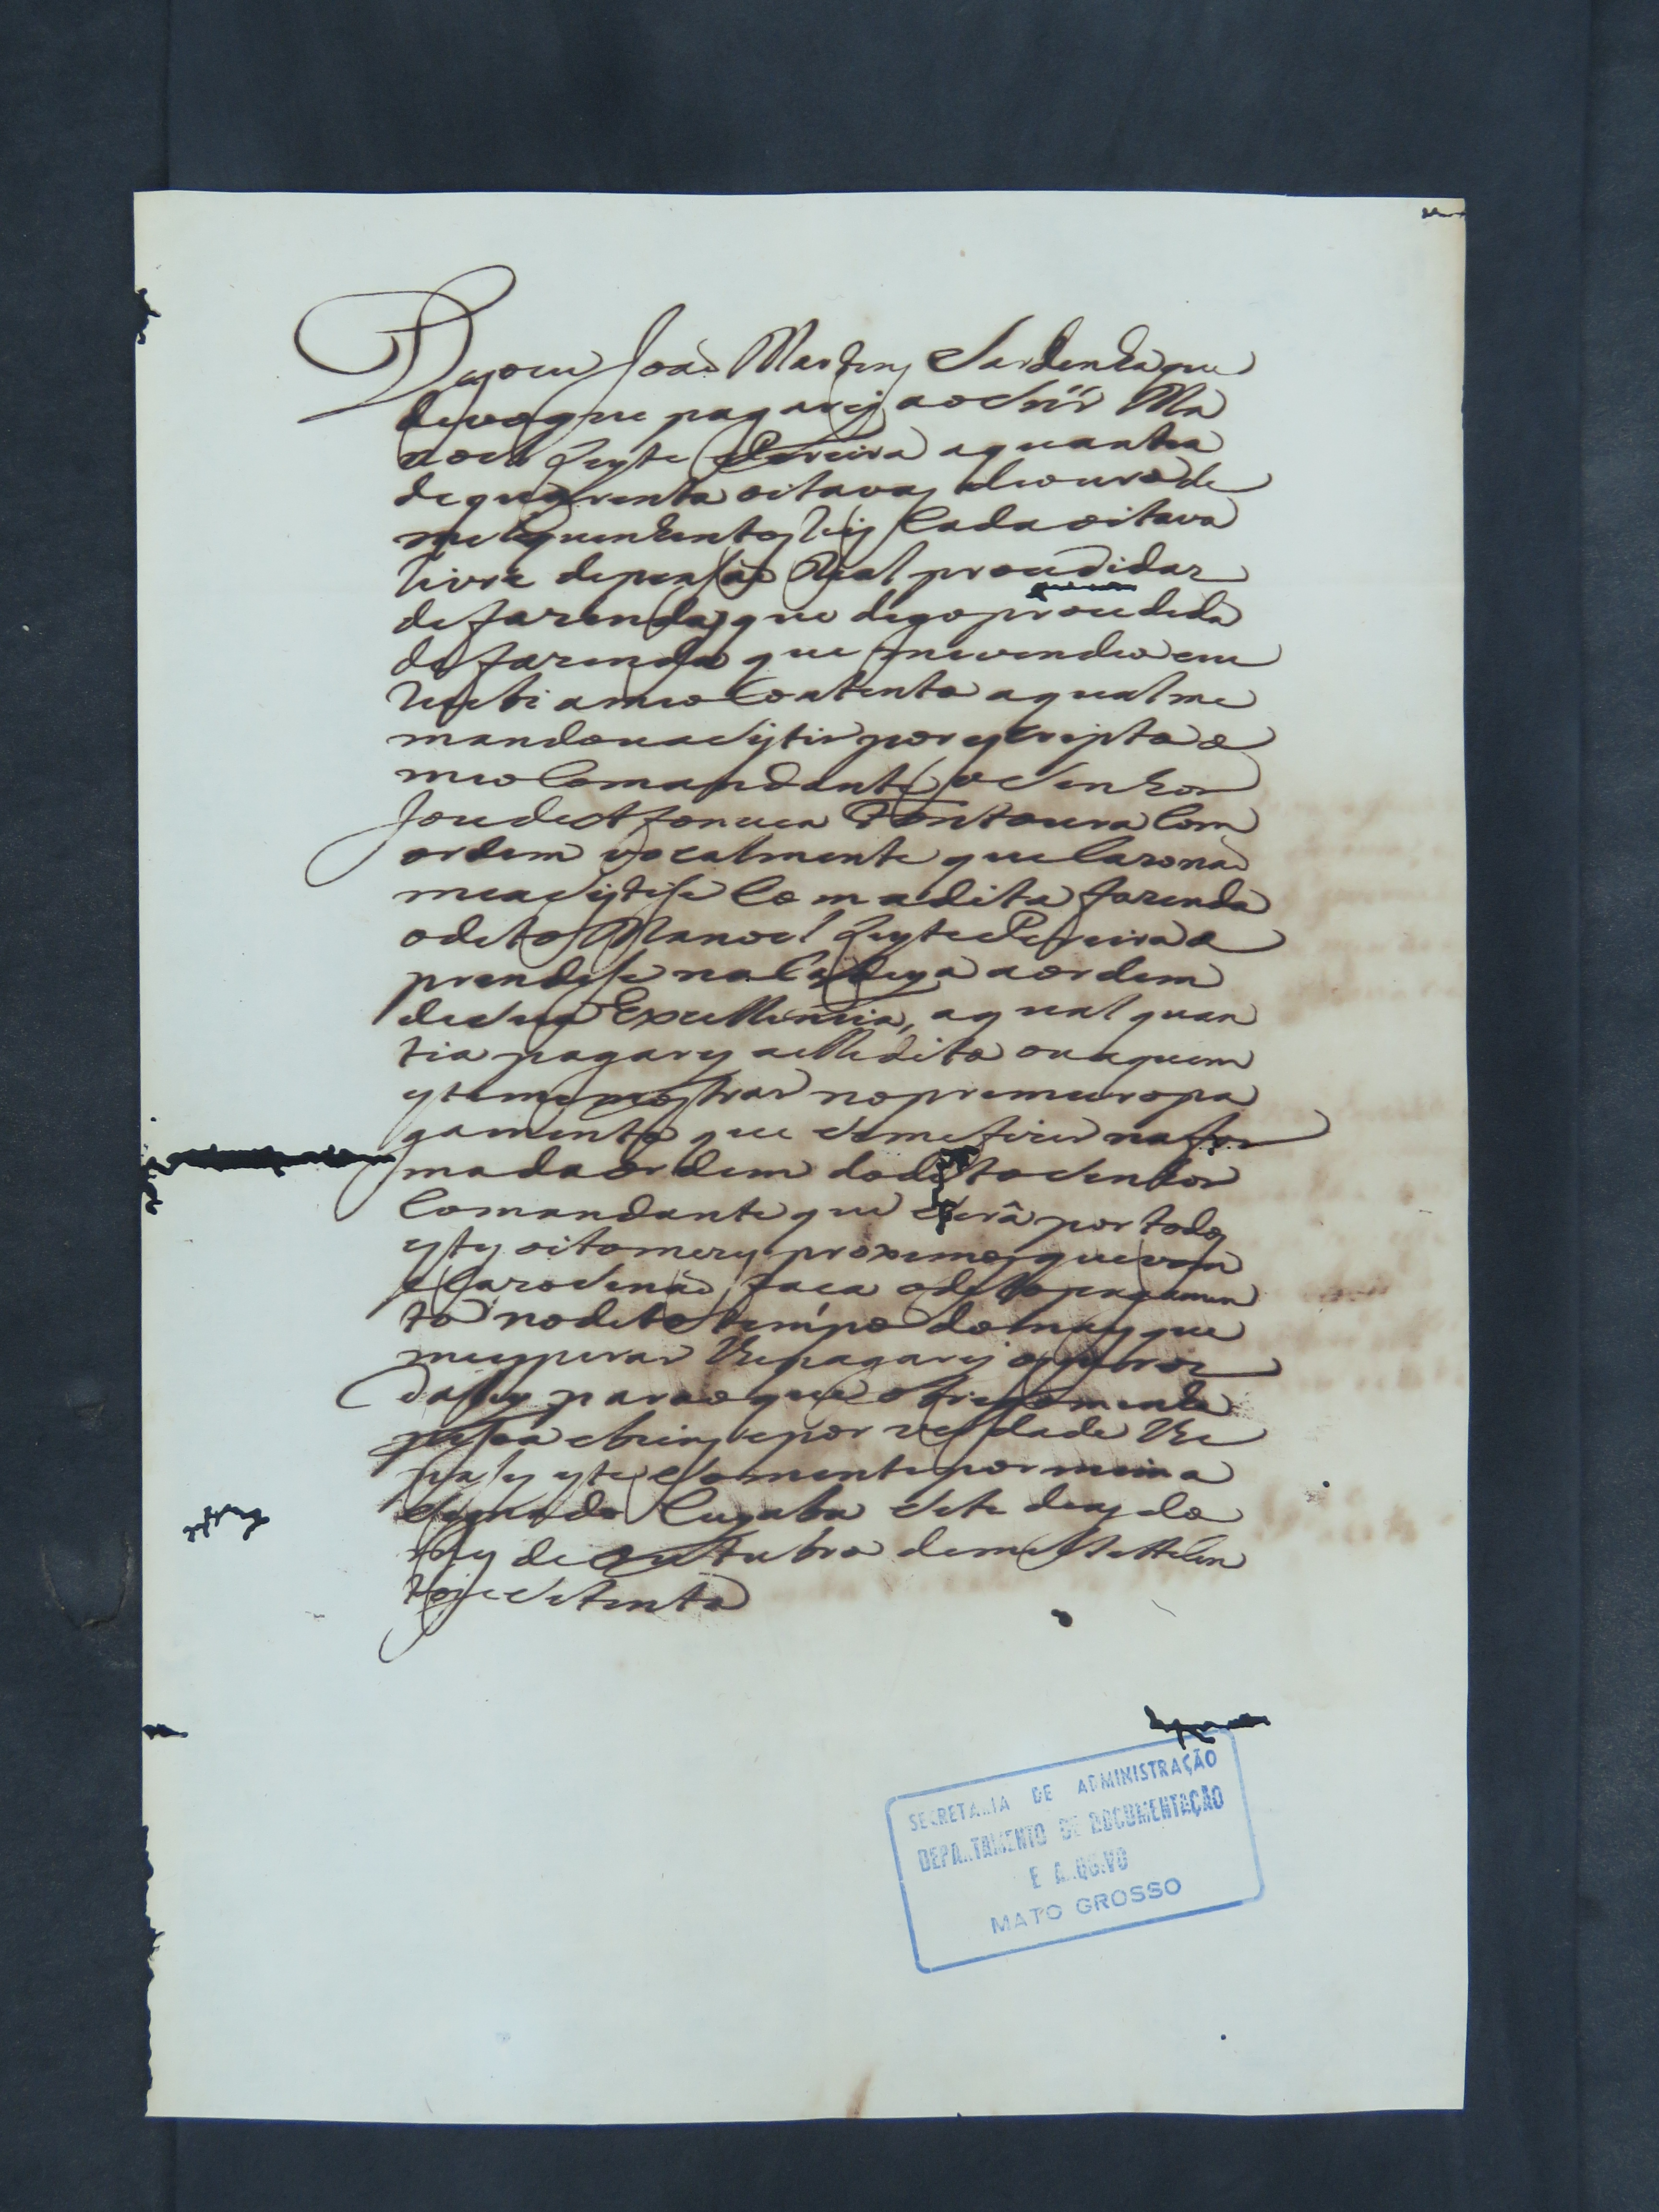 Digo eu João Martins Sardenha que
devo e que pagarej ao Snr̃ Ma
noel Leyte Pereira a quantia
de quarenta oitavas de ouro de
mil quinhentos reis Cada oitava
livre de pensão Real procedidas
de fazendas que digo procedida
de fazenda que me vendeo e eu
recebi a meo Contento a qual me
mandou asystir por escripto o
meo Comandante o Senhor
Joze de Afonceca Fontoura Com
ordem vocalmente que Cazo não
me asystise Com a dita fazenda
o dito Manoel Leyte Pereira o
prendese na Cadeya a ordem
de Sua Excellencia, a qual quan
tia pagarej a elle dito ou a quem
este me mostrar no primeiro pa
gamento que se me fizer na for
ma da ordem do dito Senhor
Comandante que Será por todos
estes oito mezes proximos que vem
e Cazo Se não faca o dito pagamen
to no dito tempo do mais que
me esperar lhe pagarej os juros
da ley para o que obrigo minha
pesoa e beins e por verdade lhe
pasey este Somente por mim a
Signado Cuyaba Sete dias do
mes de outubro de mil Sette Cen
tos e Setenta
SECRETARIA DE ADMINISTRAÇÃO
DEPARTAMENTO DE DOCUMENTAÇÃO
E ARQUIVO
MATO GROSSO